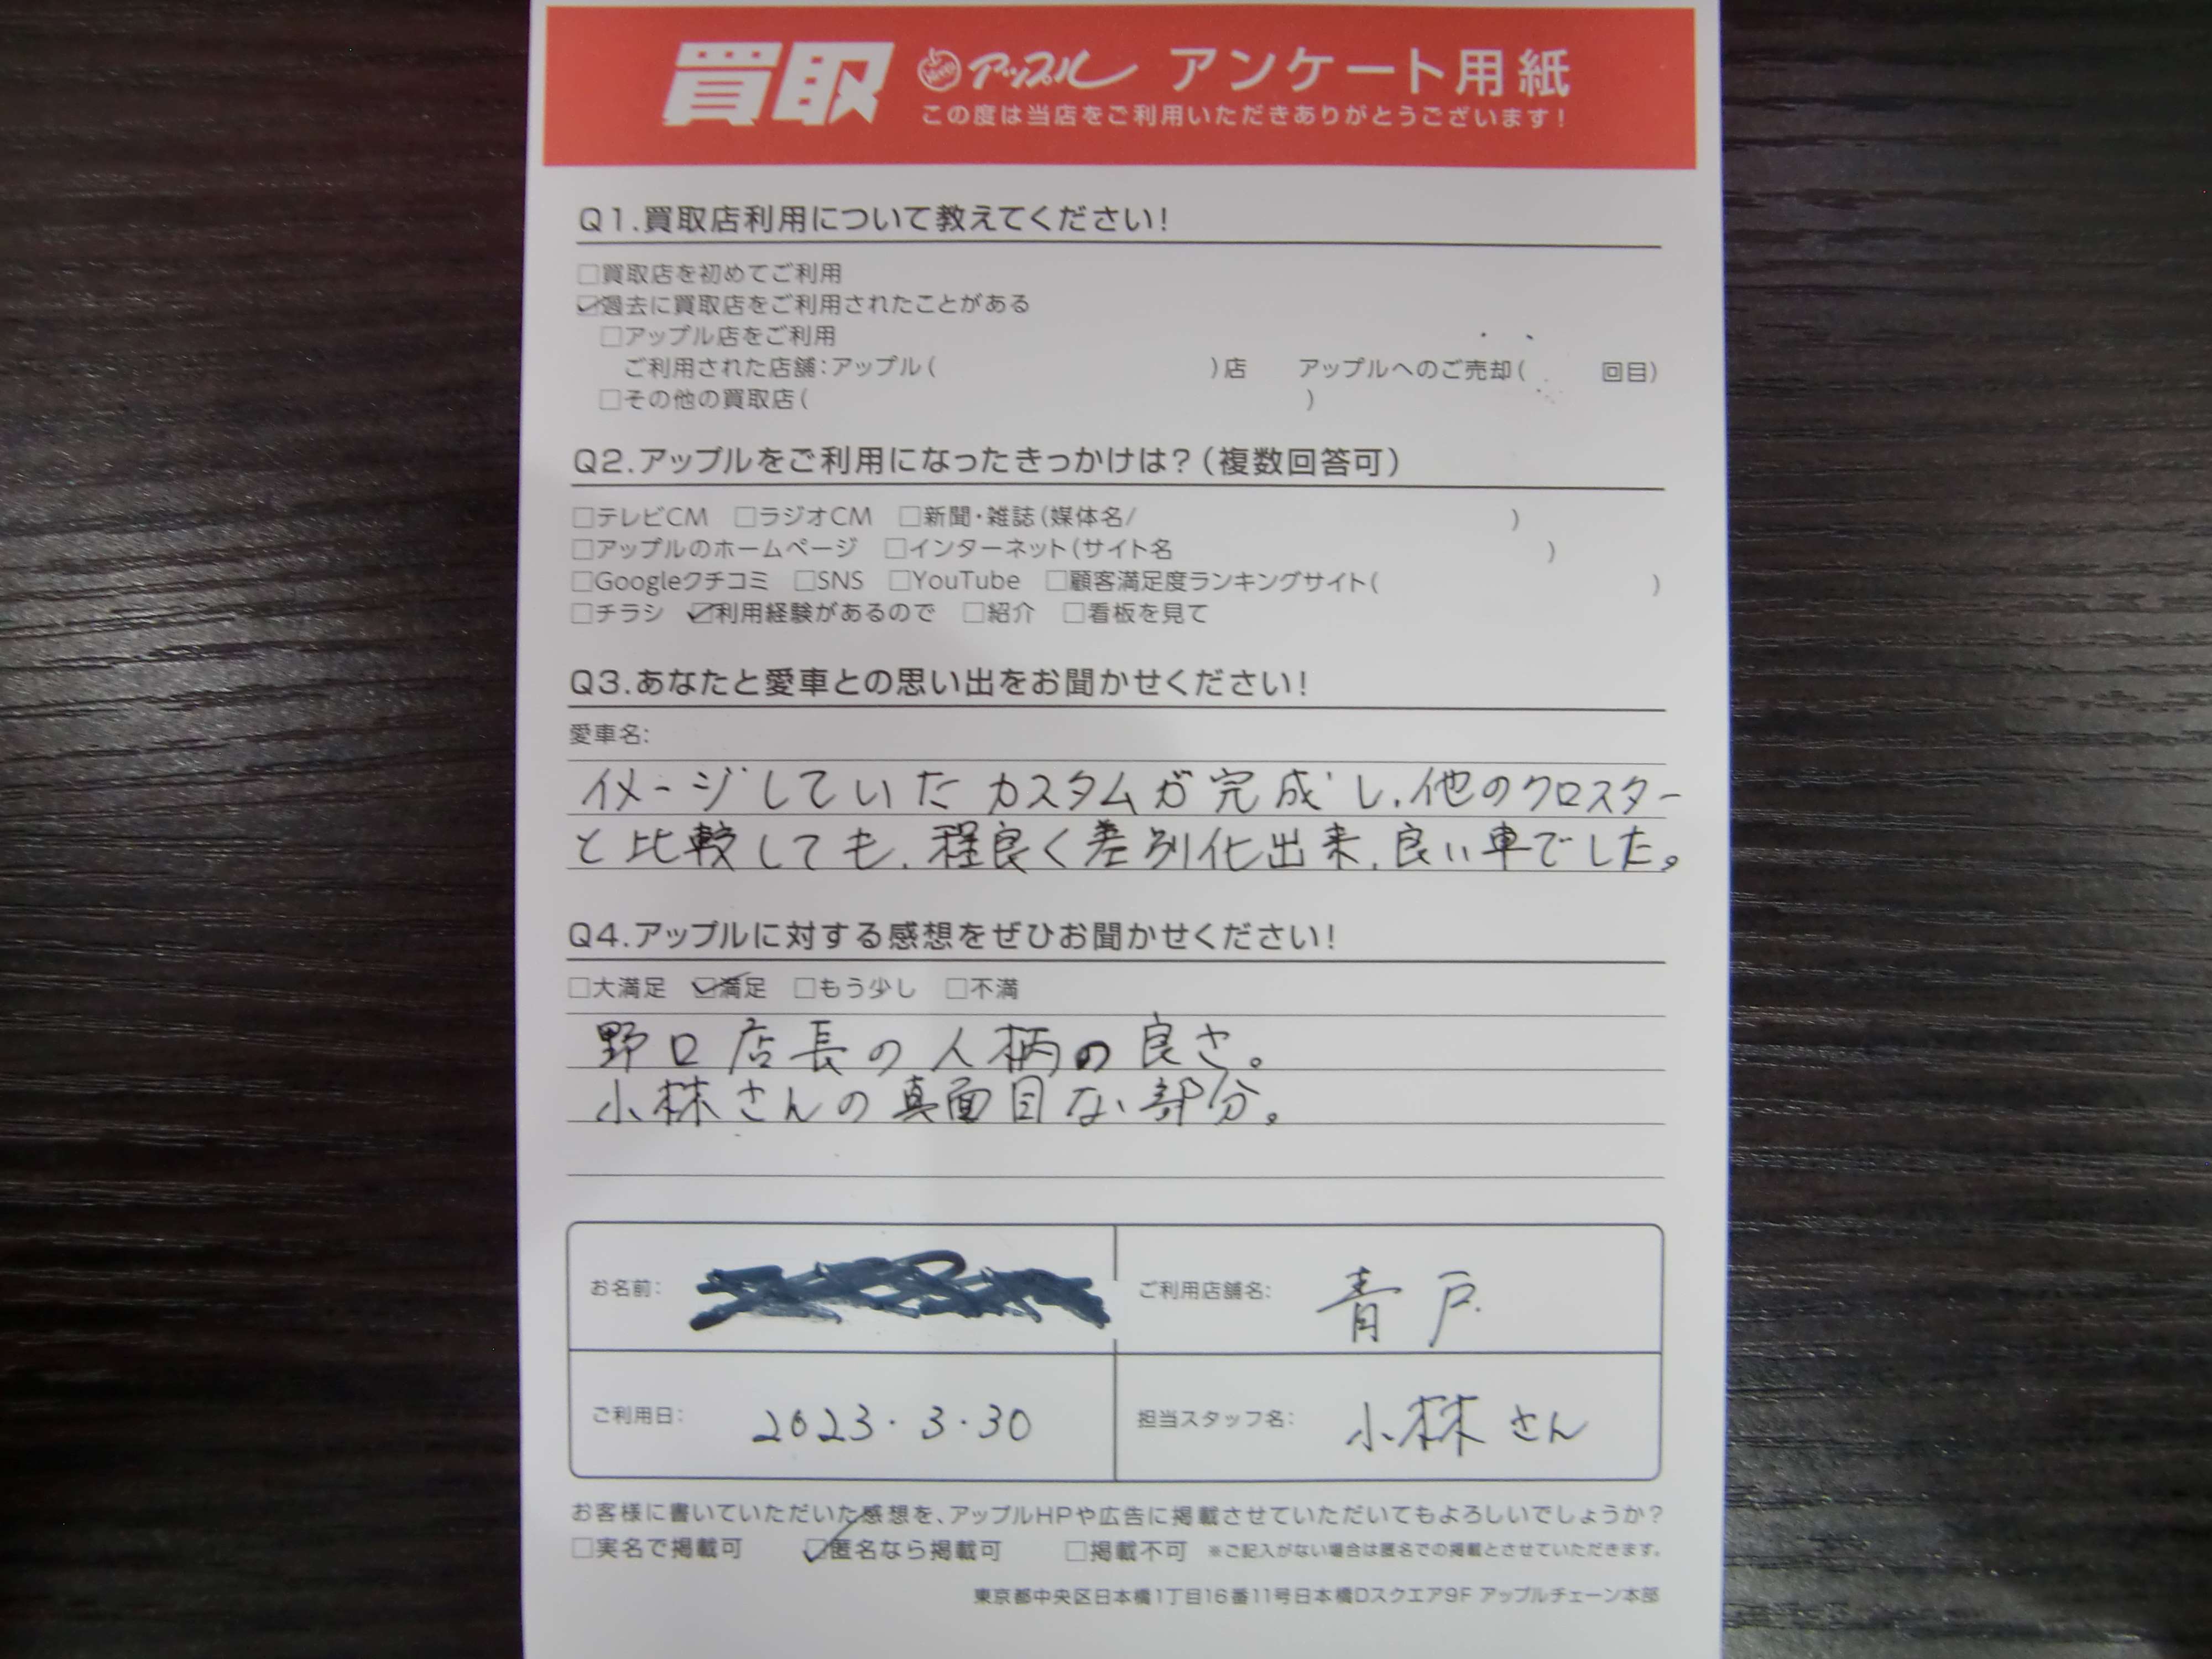 買取 アップル アンケート用紙
この度は当店をご利用いただきありがとうございます!
Q1.買取店利用について教えてください!
□買取店を初めてご利用
☑過去に買取店をご利用されたことがある
□アップル店をご利用
ご利用された店舗:アップル( )店 アップルへのご売却( 回目)
□その他の買取店( )
Q2.アップルをご利用になったきっかけは?(複数回答可)
□テレビCM □ラジオCM □新聞・雑誌(媒体名/ )
□アップルのホームページ □インターネット(サイト名 )
□Googleクチコミ □SNS □YouTube □顧客満足度ランキングサイト( )
□チラシ ☑利用経験があるので □紹介 □看板を見て
Q3.あなたと愛車との思い出をお聞かせください!
愛車名:
イメージしていたカスタムが完成し、他のクロスター
と比較しても、程良く差別化出来、良い車でした。
Q4.アップルに対する感想をぜひお聞かせください!
□大満足 ☑満足 □もう少し □不満
野口店長の人柄の良さ。
小林さんの真面目な部分。
お名前: ご利用店舗名: 青戸
ご利用日: 2023・3・30 担当スタッフ名: 小林さん
お客様に書いていただいた感想を、アップルHPや広告に掲載させていただいてもよろしいでしょうか?
□実名で掲載可 ☑匿名なら掲載可 □掲載不可 ※ご記入がない場合は匿名での掲載とさせていただきます。
東京都中央区日本橋1丁目16番11号日本橋Dスクエア9F アップルチェーン本部